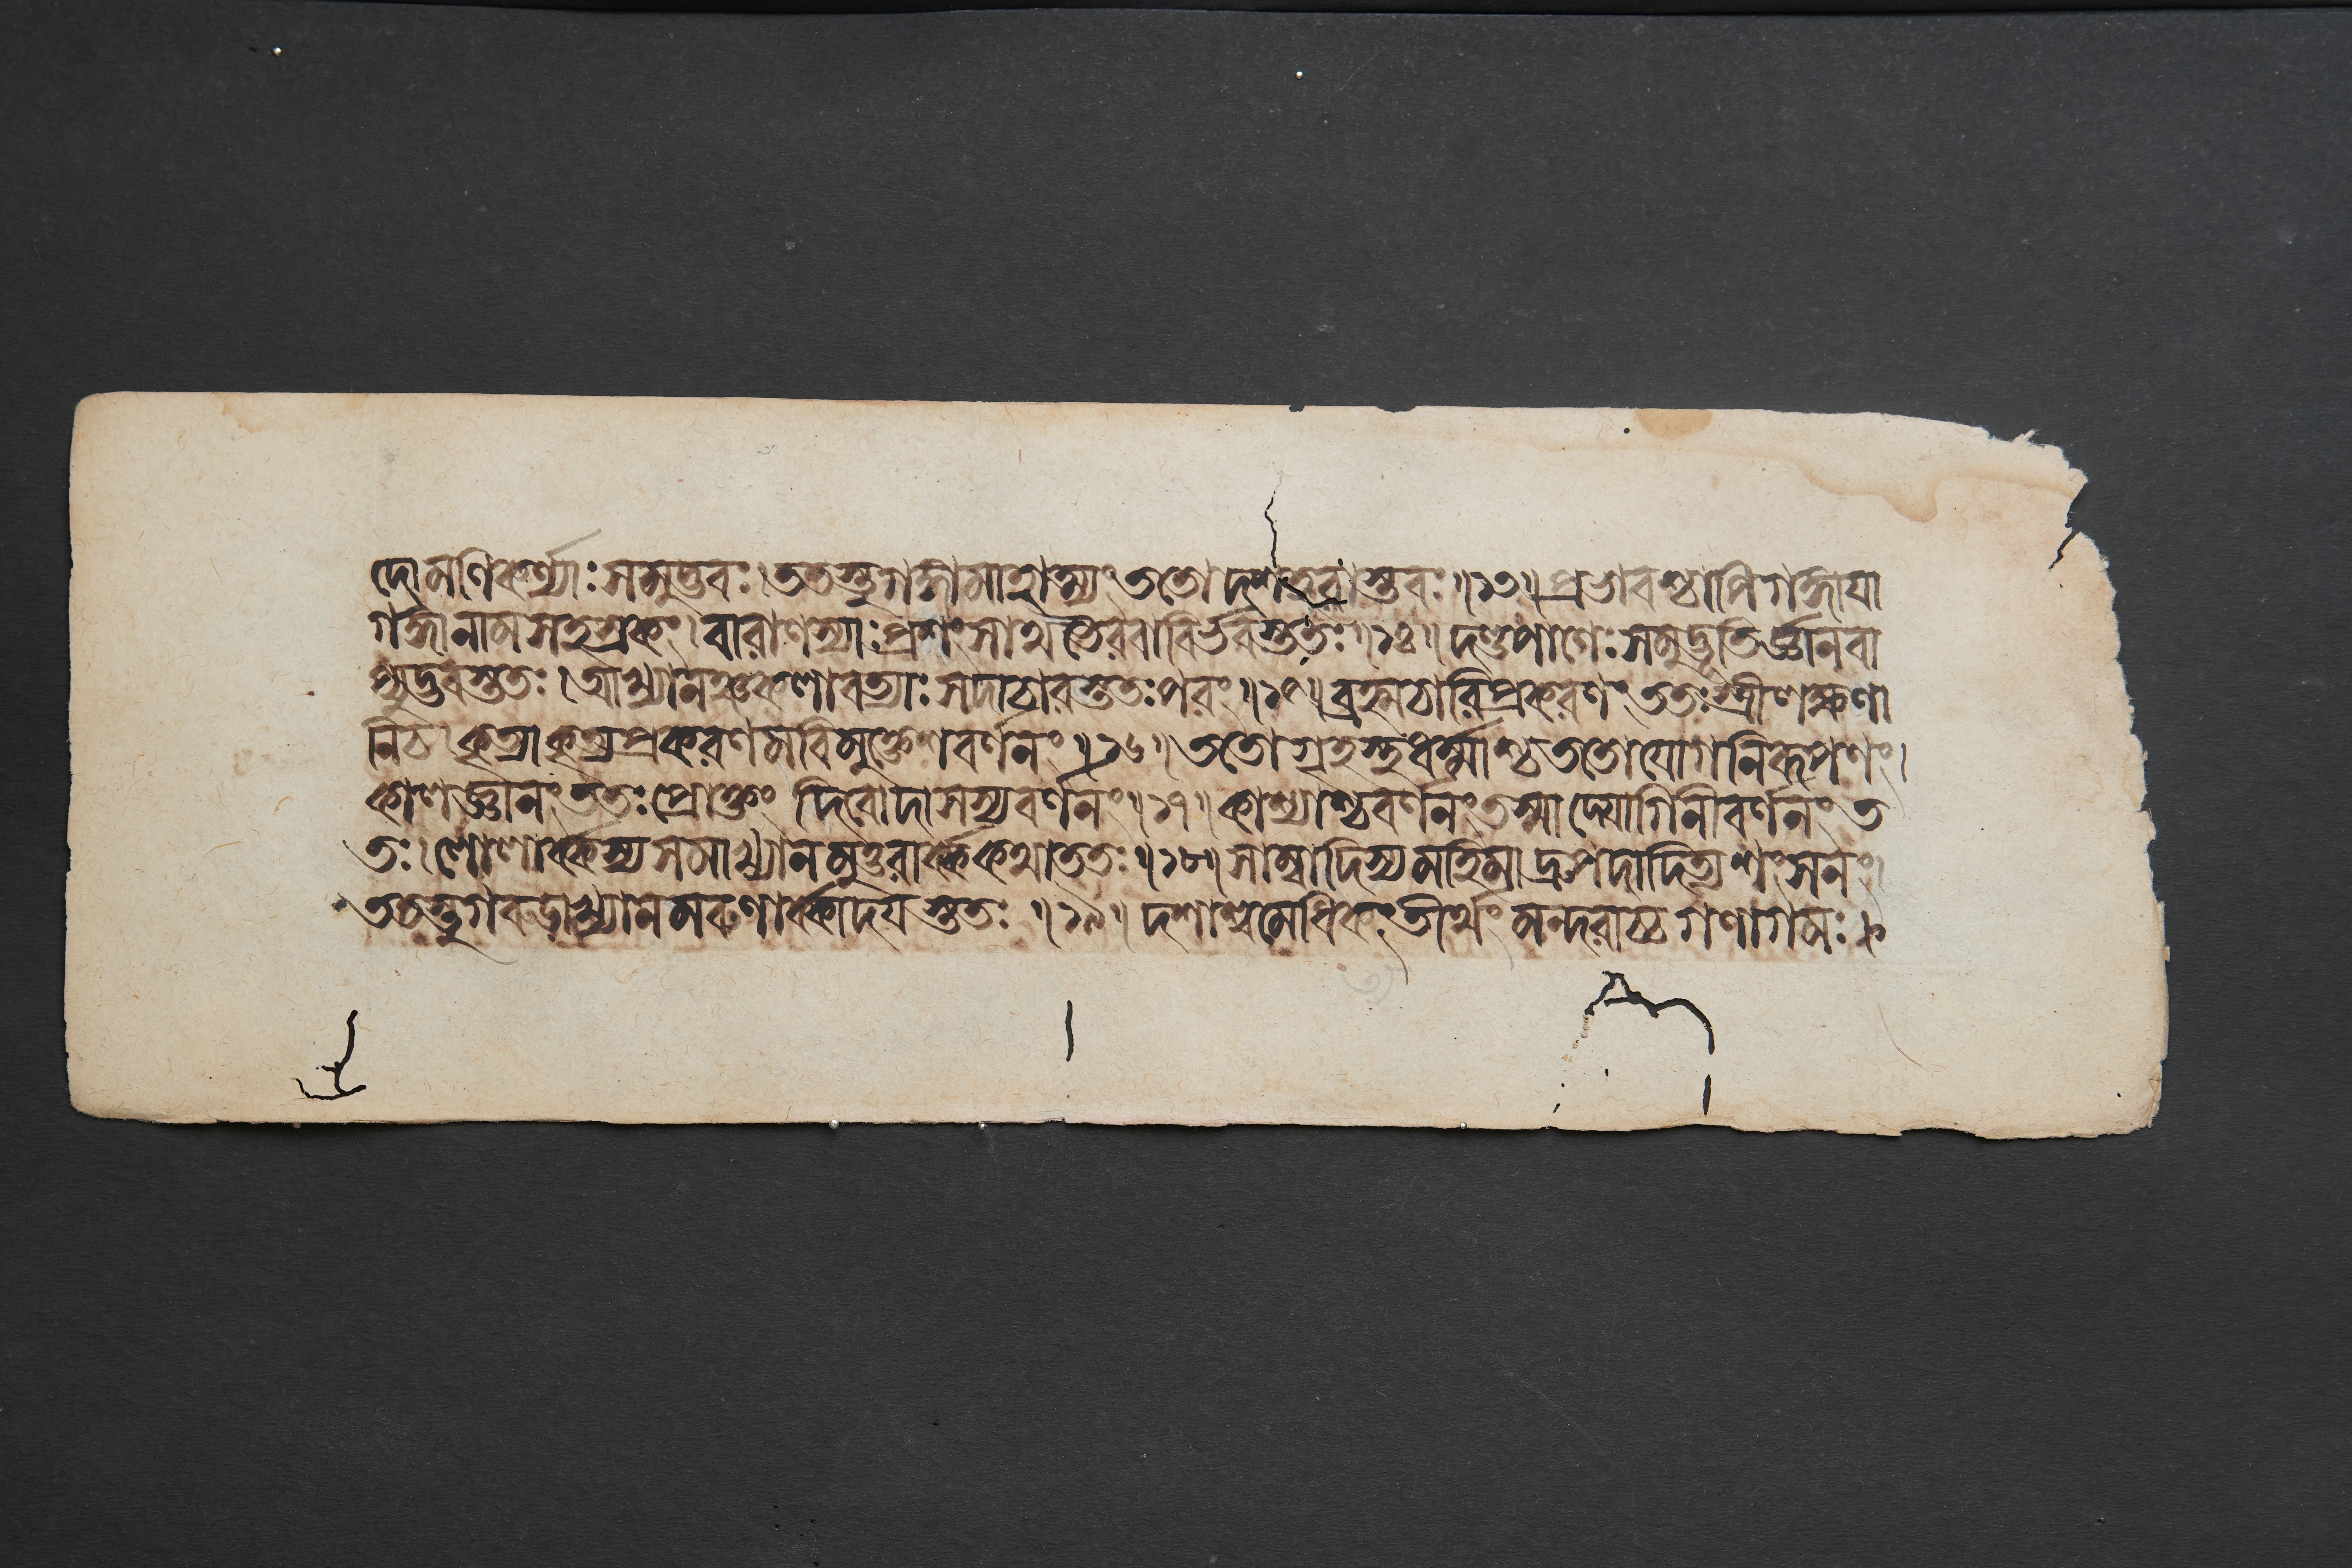 দো মণিকর্ণ্যাঃ সমুদ্ভবঃ। ততস্তু গঙ্গামাহাত্ম্যং ততো দশহরাস্তবঃ॥১৩॥ প্রভাবশ্চাপি গঙ্গায়া
গঙ্গানামসহস্রকং। বারাণস্যাঃ প্রশংসাথ ভৈরবাবির্ভবস্ততঃ॥১৪॥ দণ্ডপাণেঃ সমুদ্ভূতির্জ্ঞানবা
প্যুদ্ভবস্ততঃ। আখ্যানঞ্চ কলাবত্যাঃ সদাচারস্ততঃ পরং॥১৫॥ ব্রহ্মচারিপ্রকরণং ততঃ স্ত্রীলক্ষণা
নি চ। কৃত্যাকৃত্যপ্রকরণমবিমুক্তেশবর্ণনং॥১৬॥ ততো গৃহস্থধর্ম্মাশ্চ ততো যোগনিরূপণং।
কালজ্ঞানং ততঃ প্রোক্তং দিবোদাসস্য বর্ণনং॥১৭॥ কাশ্যাশ্চ বর্ণনং তস্মাদ্যোগিনীবর্ণনং ত
তঃ। লোলার্ক্কস্য সমাখ্যানমুত্তরার্ক্ককথা ততঃ॥১৮॥ সাম্বাদিত্যস্য মহিমা দ্রুপদাদিত্যশংসনং।
ততস্তু গরুডাখ্যানমরুণার্ক্কোদয়স্ততঃ॥১৯॥ দশাশ্বমেধিকং তীর্থং মন্দরাচ্চ গণাগমঃ।